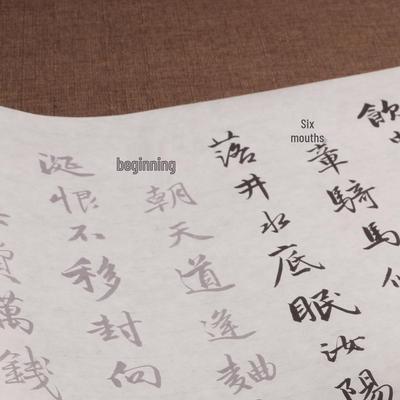 飲
Six
mouths
章騎馬
落井水底眠汝陽
beginning
朝天道逢麴
涎恨不移封向
費萬錢